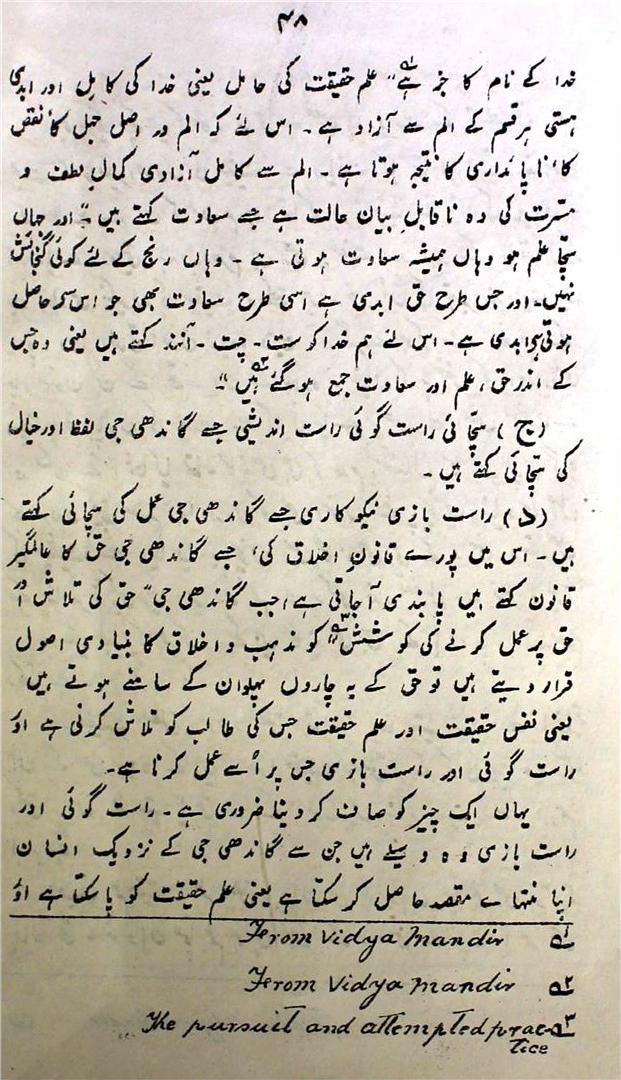 ۴۸
خدا کے نام کا جز ہے۱" علم حقیقت کی حامل یعنی خدا کی کامل اور ابدی
ہستی ہر قسم کے الم سے آزاد ہے۔ اس لئے کہ الم در اصل جہل کا نقص
کا، ناپائداری کا نتیجہ ہوتا ہے۔ الم سے کامل آزادی کمال لطف و
مسرت کی وہ ناقابل بیان حالت ہے جسے سعادت کہتے ہیں۔ "اور جہاں
سچا علم ہو وہاں ہمیشہ سعادت ہوتی ہے۔ وہاں رنج کے لئے کوئی گنجائش
نہیں۔ اور جس طرح حق ابدی ہے اسی طرح سعادت بھی جو اس سے حاصل
ہوتی ہے ابدی ہے۔ اس لئے ہم خدا کو ست۔ چت۔ آنند کہتے ہیں یعنی وہ جس
کے اندر حق، علم اور سعادت جمع ہو گئے ہیں۲"۔
(ج) سچائی راست گوئی راست اندیشی جسے گاندھی جی لفظ اور خیال
کی سچائی کہتے ہیں۔
(د) راست بازی نیکو کاری جسے گاندھی جی عمل کی سچائی کہتے
ہیں۔ اس میں پورے قانون اخلاق کی، جسے گاندھی جی حق کا عالمگیر
قانون کہتے ہیں پابندی آجاتی ہے، جب گاندھی جی "حق کی تلاش اور
حق پر عمل کرنے کی کوشش۳" کو مذہب و اخلاق کا بنیادی اصول
قرار دیتے ہیں تو حق کے یہ چاروں پہلو ان کے سامنے ہوتے ہیں
یعنی نفس حقیقت اور علم حقیقت جس کی طالب کو تلاش کرنی ہے اور
راست گوئی اور راست بازی جس پر اُسے عمل کرنا ہے۔
یہاں ایک چیز کو صاف کر دینا ضروری ہے۔ راست گوئی اور
راست بازی وہ وسیلے ہیں جن سے گاندھی جی کے نزدیک انسان
اپنا منتہائے مقصد حاصل کر سکتا ہے یعنی علم حقیقت کو پا سکتا ہے اور
۱ From Vidya Mandir
۲ From Vidya Mandir
۳ The pursuit and attempted prac-
tice